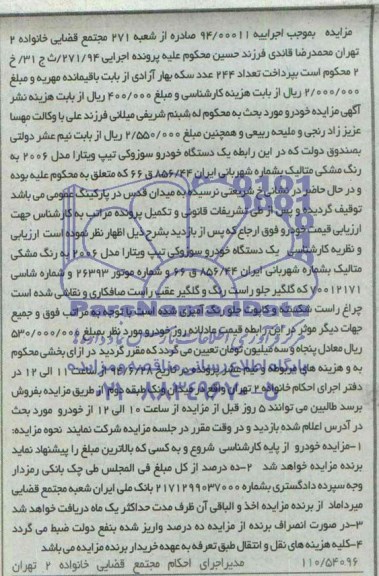 مزایده بموجب اجراییه ۹۴/۰۰۰۱۱ صادره از شعبه ۲۷۱ مجتمع قضایی خانواده ۲
تهران محمدرضا قاندی فرزند حسین محکوم علیه پرونده اجرایی ۲۷۱/۹۴/ث ج ۳۱/ خ
۲ محکوم است بپرداخت تعداد ۲۴۴ عدد سکه بهار آزادی از بابت باقیمانده مهریه و مبلغ
۲/۰۰۰/۰۰۰ ریال از بابت هزینه کارشناسی و مبلغ ۴۰۰/۰۰۰ ریال از بابت هزینه نشر
آگهی مزایده خودرو مورد بحث به محکوم له شبنم شریفی میلانی فرزند علی با وکالت مهسا
عزیز زاد رنجی و ملیحه ربیعی و همچنین مبلغ ۲/۵۵۰/۰۰۰ ریال از بابت نیم عشر دولتی
بصندوق دولت که در این رابطه یک دستگاه خودرو سوزوکی تیپ ویتارا مدل ۲۰۰۶ به
رنگ مشکی متالیک بشماره شهربانی ایران ۸۵۶/۴۴ ق ۶۶ که متعلق به محکوم علیه بوده
و در حال حاضر در نشانی خ شریعتی نرسیده به میدان قدس در پارکینگ عمومی می باشد
توقیف گردیده و پس از طی تشریفات قانونی و تکمیل پرونده مراتب به کارشناس جهت
ارزیابی قیمت خودرو فوق ارجاع که پس از بازدید بشرح ذیل اظهار نظر نموده است ارزیابی
و نظریه کارشناسی یک دستگاه خودرو سوزوکی تیپ ویتارا مدل ۲۰۰۶ به رنگ مشکی
متالیک بشماره شهربانی ایران ۸۵۶/۴۴ ق ۶۶ و شماره موتور ۲۶۳۹۳ و شماره شاسی
۷۰۰۱۲۱۷۱ که گلگیر جلو راست رنگ و گلگیر عقب راست صافکاری و نقاشی شده است
چراغ راست شکسته و کاپوت جلو رنگ آمیزی شده است با توجه به مراتب فوق و جمیع
جهات دیگر موثر در این رابطه قیمت عادلانه روز خودرو مورد نظر بمبلغ ۵۳۰/۰۰۰/۰۰۰
ریال معادل پنجاه و سه میلیون تومان تعیین می گردد که مقرر گردید در ازای بخشی محکوم
به و هزینه های مربوطه و نیم عشر دولتی در تاریخ از ساعت ۱۱ الی ۱۲ در
دفتر اجرای احکام خانواده ۲ تهران واقع در طبقه دوم از طریق مزایده بفروش
برسد طالبین می توانند ۵ روز قبل از مزایده از ساعت ۱۰ الی ۱۲ از خودرو مورد بحث
در آدرس اعلام شده بازدید و در وقت مقرر در جلسه مزایده شرکت نمایند نحوه مزایده:
۱-مزایده خودرو از پایه کارشناسی شروع و به کسی که بالاترین مبلغ را پیشنهاد نماید
برنده مزایده خواهد شد ۲-ده درصد از کل مبلغ فی المجلس طی چک بانکی رمزدار
وجه سپرده دادگستری بشماره ۲۱۷۱۲۹۹۰۳۷۰۰۰ بانک ملی ایران شعبه مجتمع قضایی
میرداماد از برنده مزایده اخذ و الباقی آن ظرف مدت حداکثر یک ماه دریافت خواهد شد
۳-در صورت انصراف برنده از مزایده ده درصد واریز شده بنفع دولت ضبط می گردد
۴-کلیه هزینه های نقل و انتقال طبق تعرفه به عهده خریدار برنده مزایده می باشد
۱۱۰/۵۴۰۹۶ مدیراجرای احکام مجتمع قضایی خانواده ۲ تهران